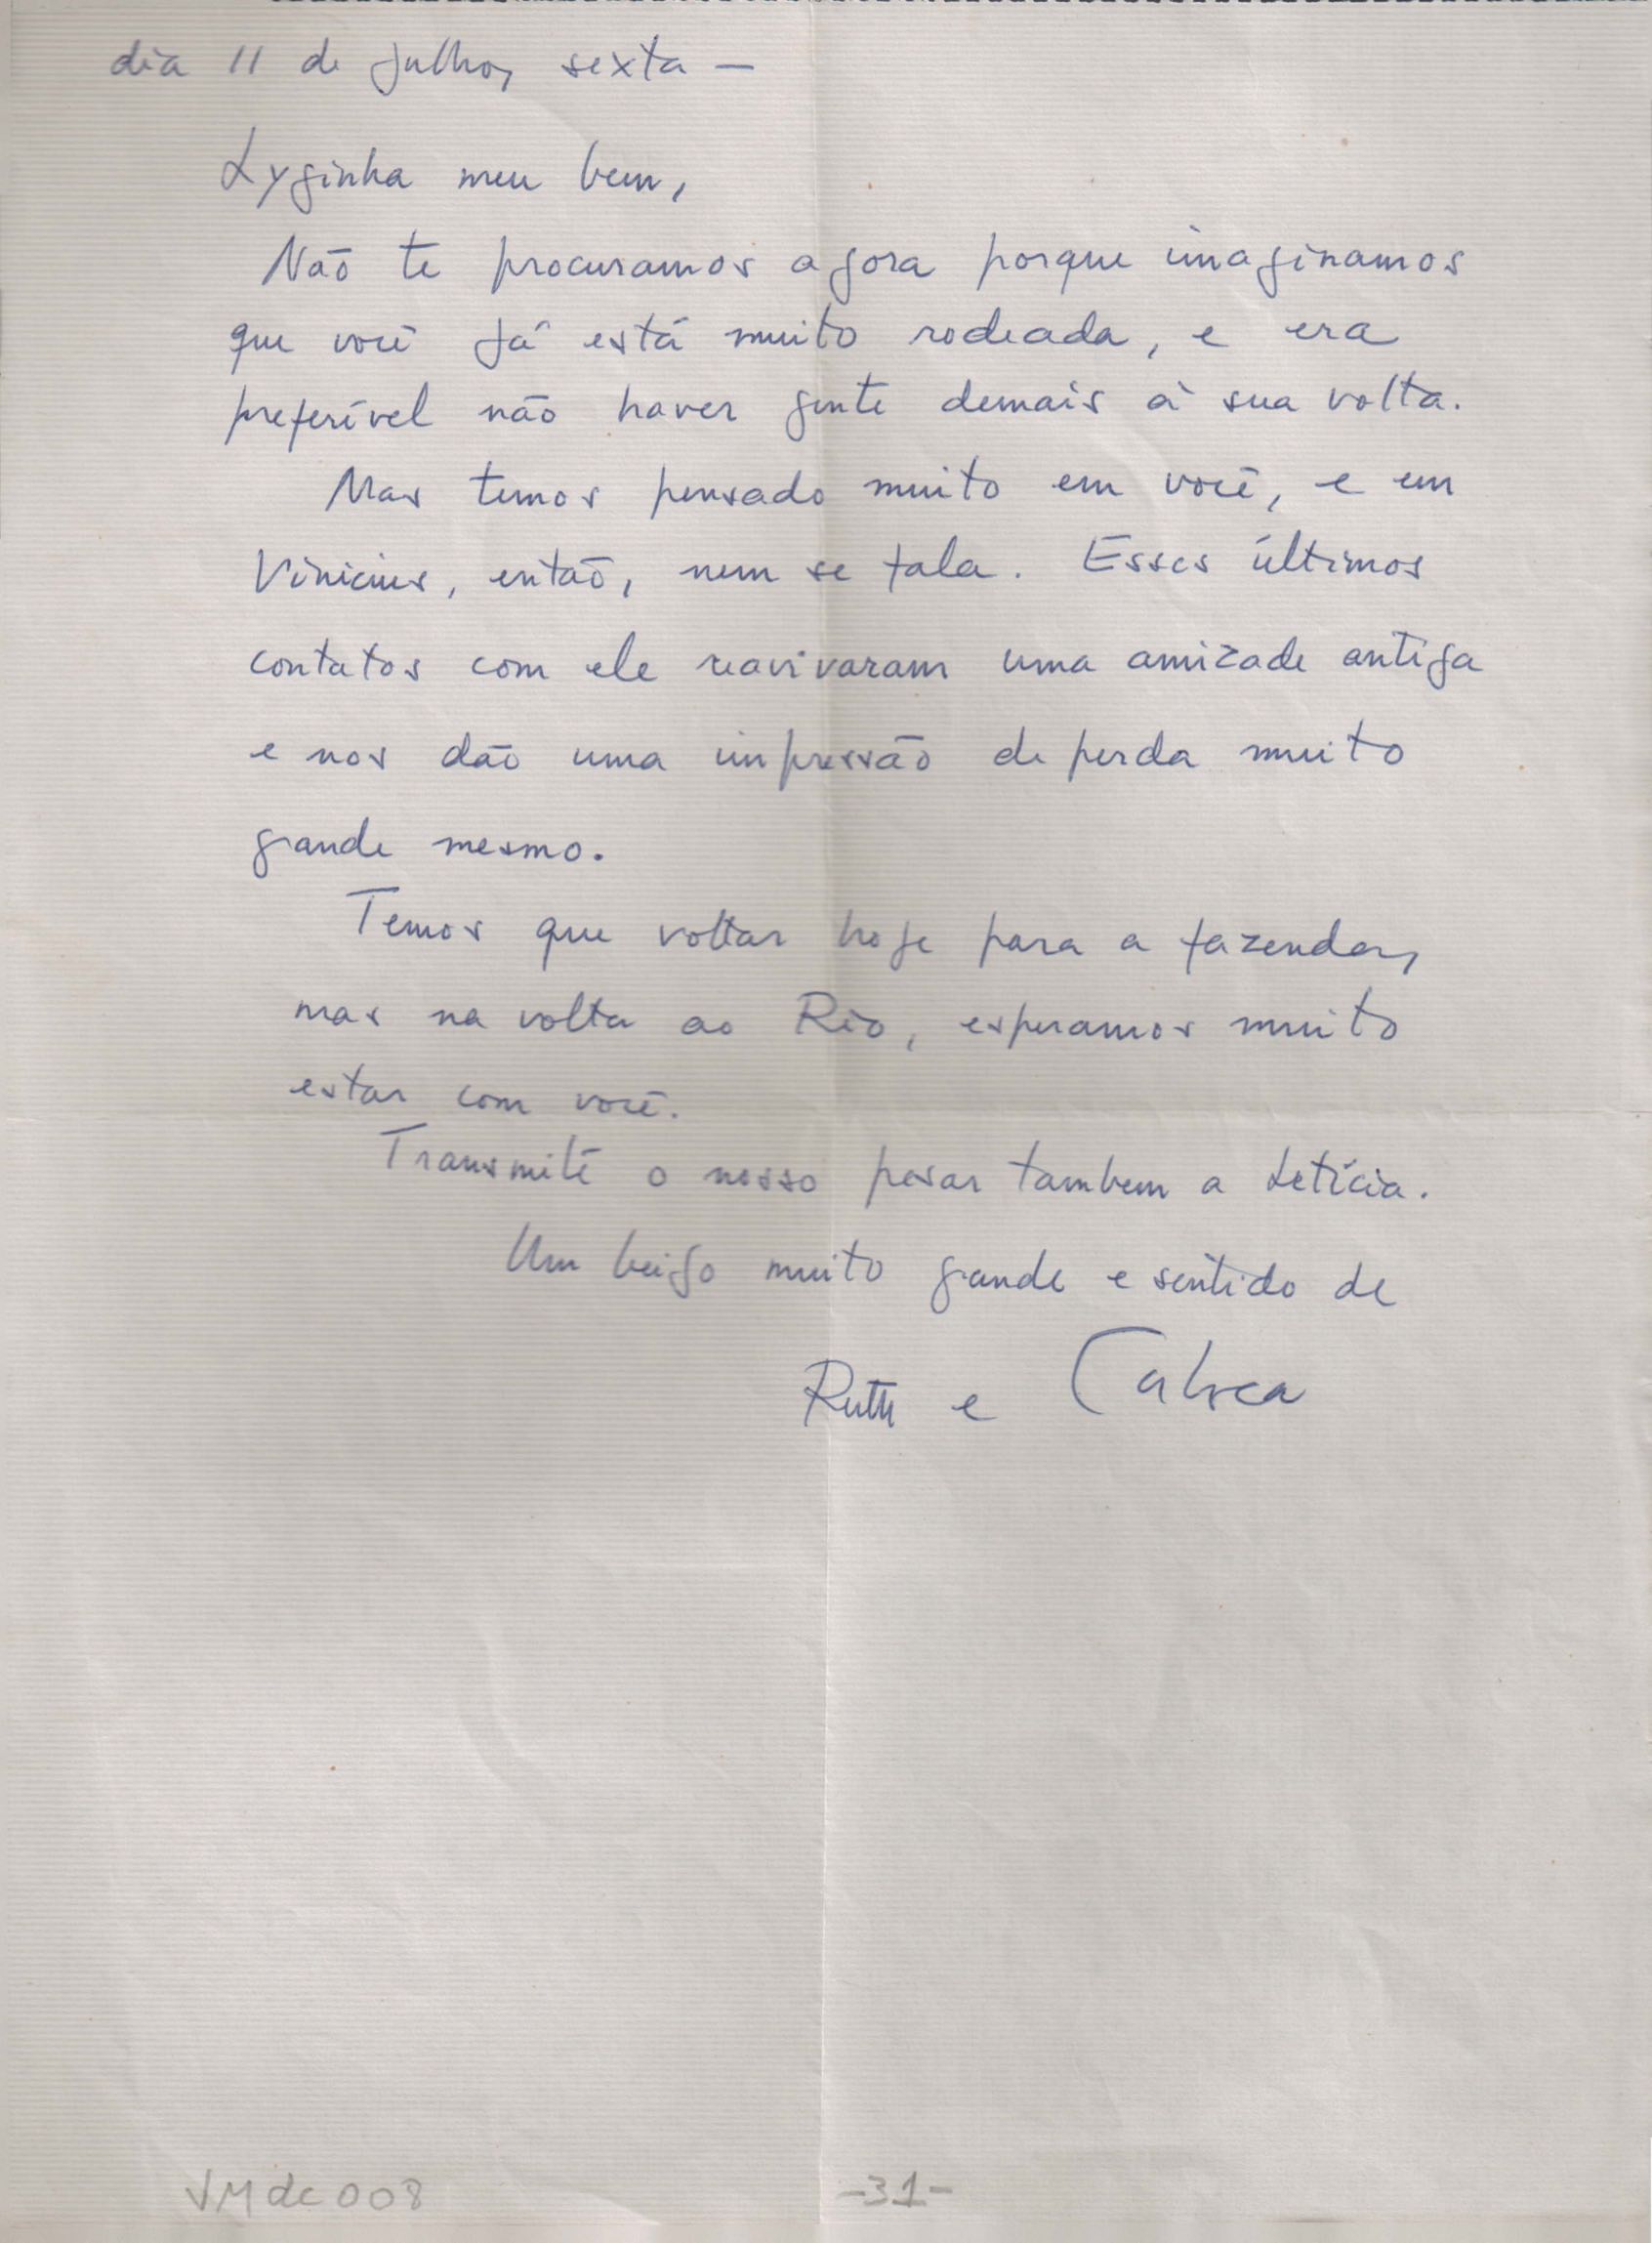 dia 11 de julho, sexta —
Lyginha meu bem,
Não te procuramos agora porque imaginamos
que você já está muito rodeada, e era
preferível não haver gente demais à sua volta.
Mas temos pensado muito em você, e em
Vinicius, então, nem se fala. Esses últimos
contatos com ele reavivaram uma amizade antiga
e nos dão uma impressão de perda muito
grande mesmo.
Temos que voltar hoje para a fazenda,
mas na volta ao Rio, esperamos muito
estar com você.
Transmite o nosso pesar tambem a Letícia.
Um beijo muito grande e sentido de
Ruth e
VMdc008 -31-